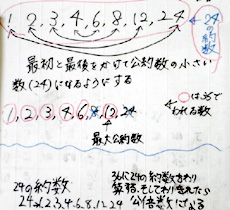 1, 2, 3, 4, 6, 8, 12, 24
24の約数
最初と最後をかけて公約数の小さい
数(24)になるようにする
1, 2, 3, 4, 6, 8, 12, 24
○は36で
われる数
最大公約数
24の約数
1, 2, 3, 4, 6, 8, 12, 24
36に24の約数をわり
算する。そしてわりきれたら
公倍数になる